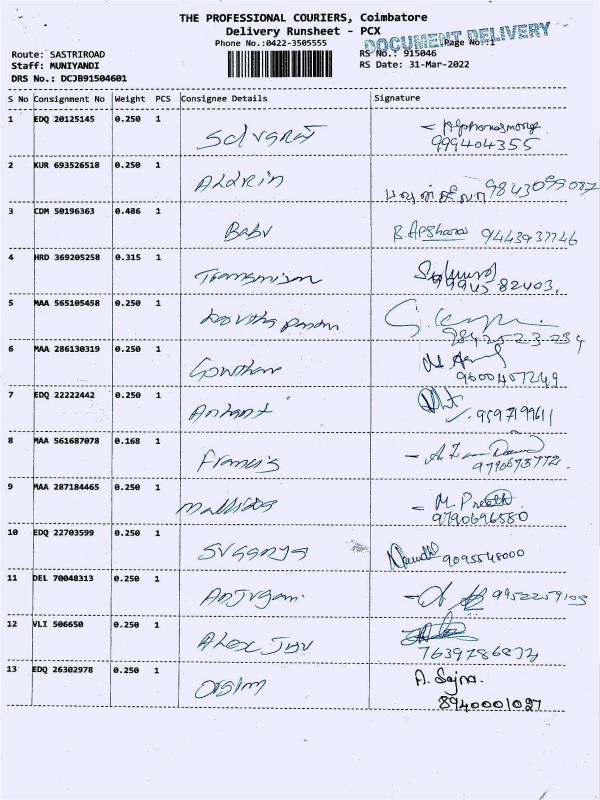 THE PROFESSIONAL COURIERS, Coimbatore
Delivery Runsheet - PCX
Phone No.:0422-3505555
DOCUMENT DELIVERY
Page No.:1
Route: SASTRIROAD
RS No.: 915046
Staff: MUNIYANDI
RS Date: 31-Mar-2022
DRS No.: DCJB91504601
S No Consignment No Weight PCS Consignee Details Signature
1 EDQ 20125145 0.250 1
999404355
2 KUR 693526518 0.250 1
Aldrin
9843099087
3 CDM 50196363 0.486 1
Babu B.Apshara 9443937746
4 HRD 369205258 0.315 1
5 MAA 565105458 0.250 1
9842523234
6 MAA 286130319 0.250 1
Gowtham
9600407249
7 EDQ 22222442 0.250 1
9597199611
8 MAA 561687078 0.168 1
Francis
9790673772
9 MAA 287184465 0.250 1
M. Preeth
9790696580
10 EDQ 22703599 0.250 1
Suganya 9095548000
11 DEL 70048313 0.250 1
Anjugam 9952259109
12 VLI 506650 0.250 1
13 EDQ 26302978 0.250 1
A. Sajna.
8940001087